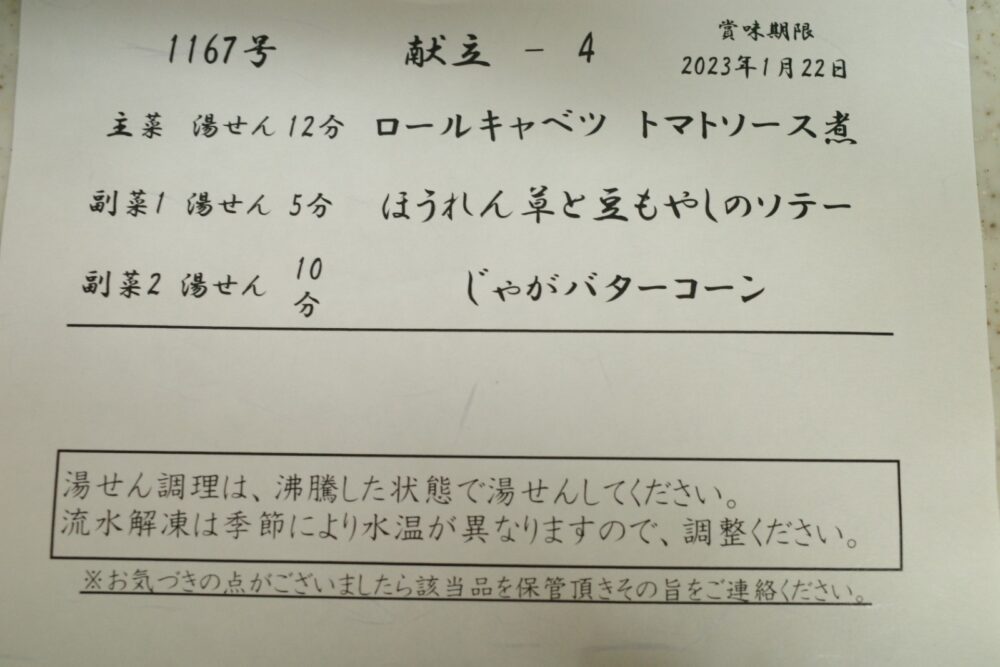 1167号 献立 - 4 賞味期限
2023年1月22日
主菜 湯せん 12分 ロールキャベツ トマトソース煮
副菜1 湯せん 5分 ほうれん草と豆もやしのソテー
副菜2 湯せん 10分 じゃがバターコーン
湯せん調理は、沸騰した状態で湯せんしてください。
流水解凍は季節により水温が異なりますので、調整ください。
※お気づきの点がございましたら該当品を保管頂きその旨をご連絡ください。